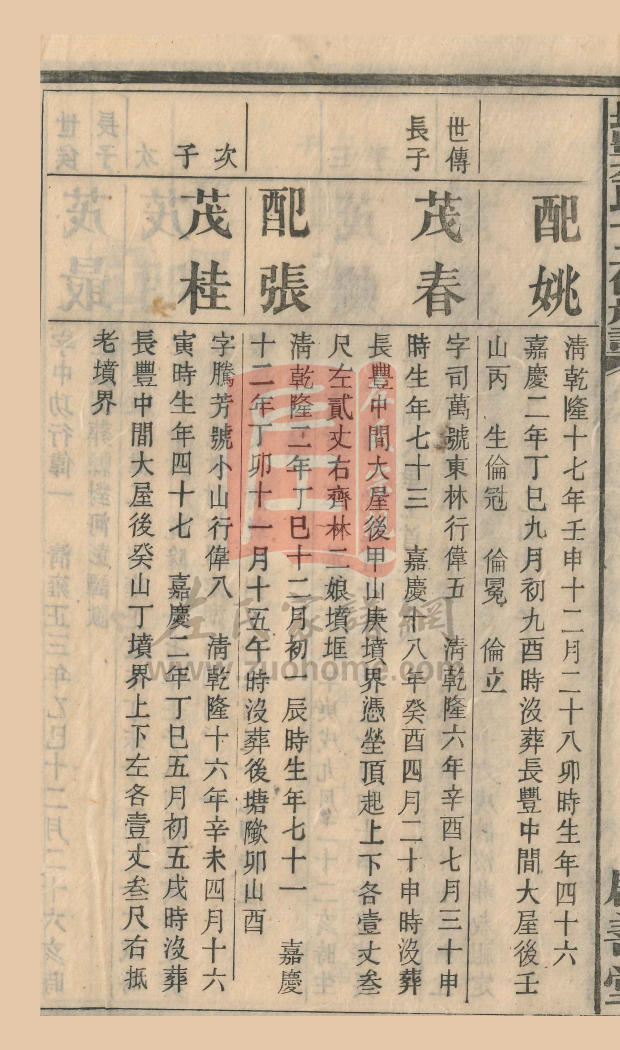 配姚
清乾隆十七年壬申十二月二十八卯時生年四十六
嘉慶二年丁巳九月初九酉時沒葬長豐中間大屋後壬
山丙　生倫冠　倫冕　倫立
世傳
長子
茂春
字司萬號東林行偉五　清乾隆六年辛酉七月三十申
時生年七十三　嘉慶十八年癸酉四月二十申時沒葬
長豐中間大屋後甲山庚墳界憑塋頂起上下各壹丈叁
尺左貳丈右齊林二娘墳堐
配張
清乾隆二年丁巳十二月初一辰時生年七十一　嘉慶
十二年丁卯十一月十五午時沒葬後塘隞卯山酉
次
子
茂桂
字騰芳號小山行偉八　清乾隆十六年辛未四月十六
寅時生年四十七　嘉慶二年丁巳五月初五戌時沒葬
長豐中間大屋後癸山丁墳界上下左各壹丈叁尺右抵
老墳界
左氏家譜網
www.zuohome.com